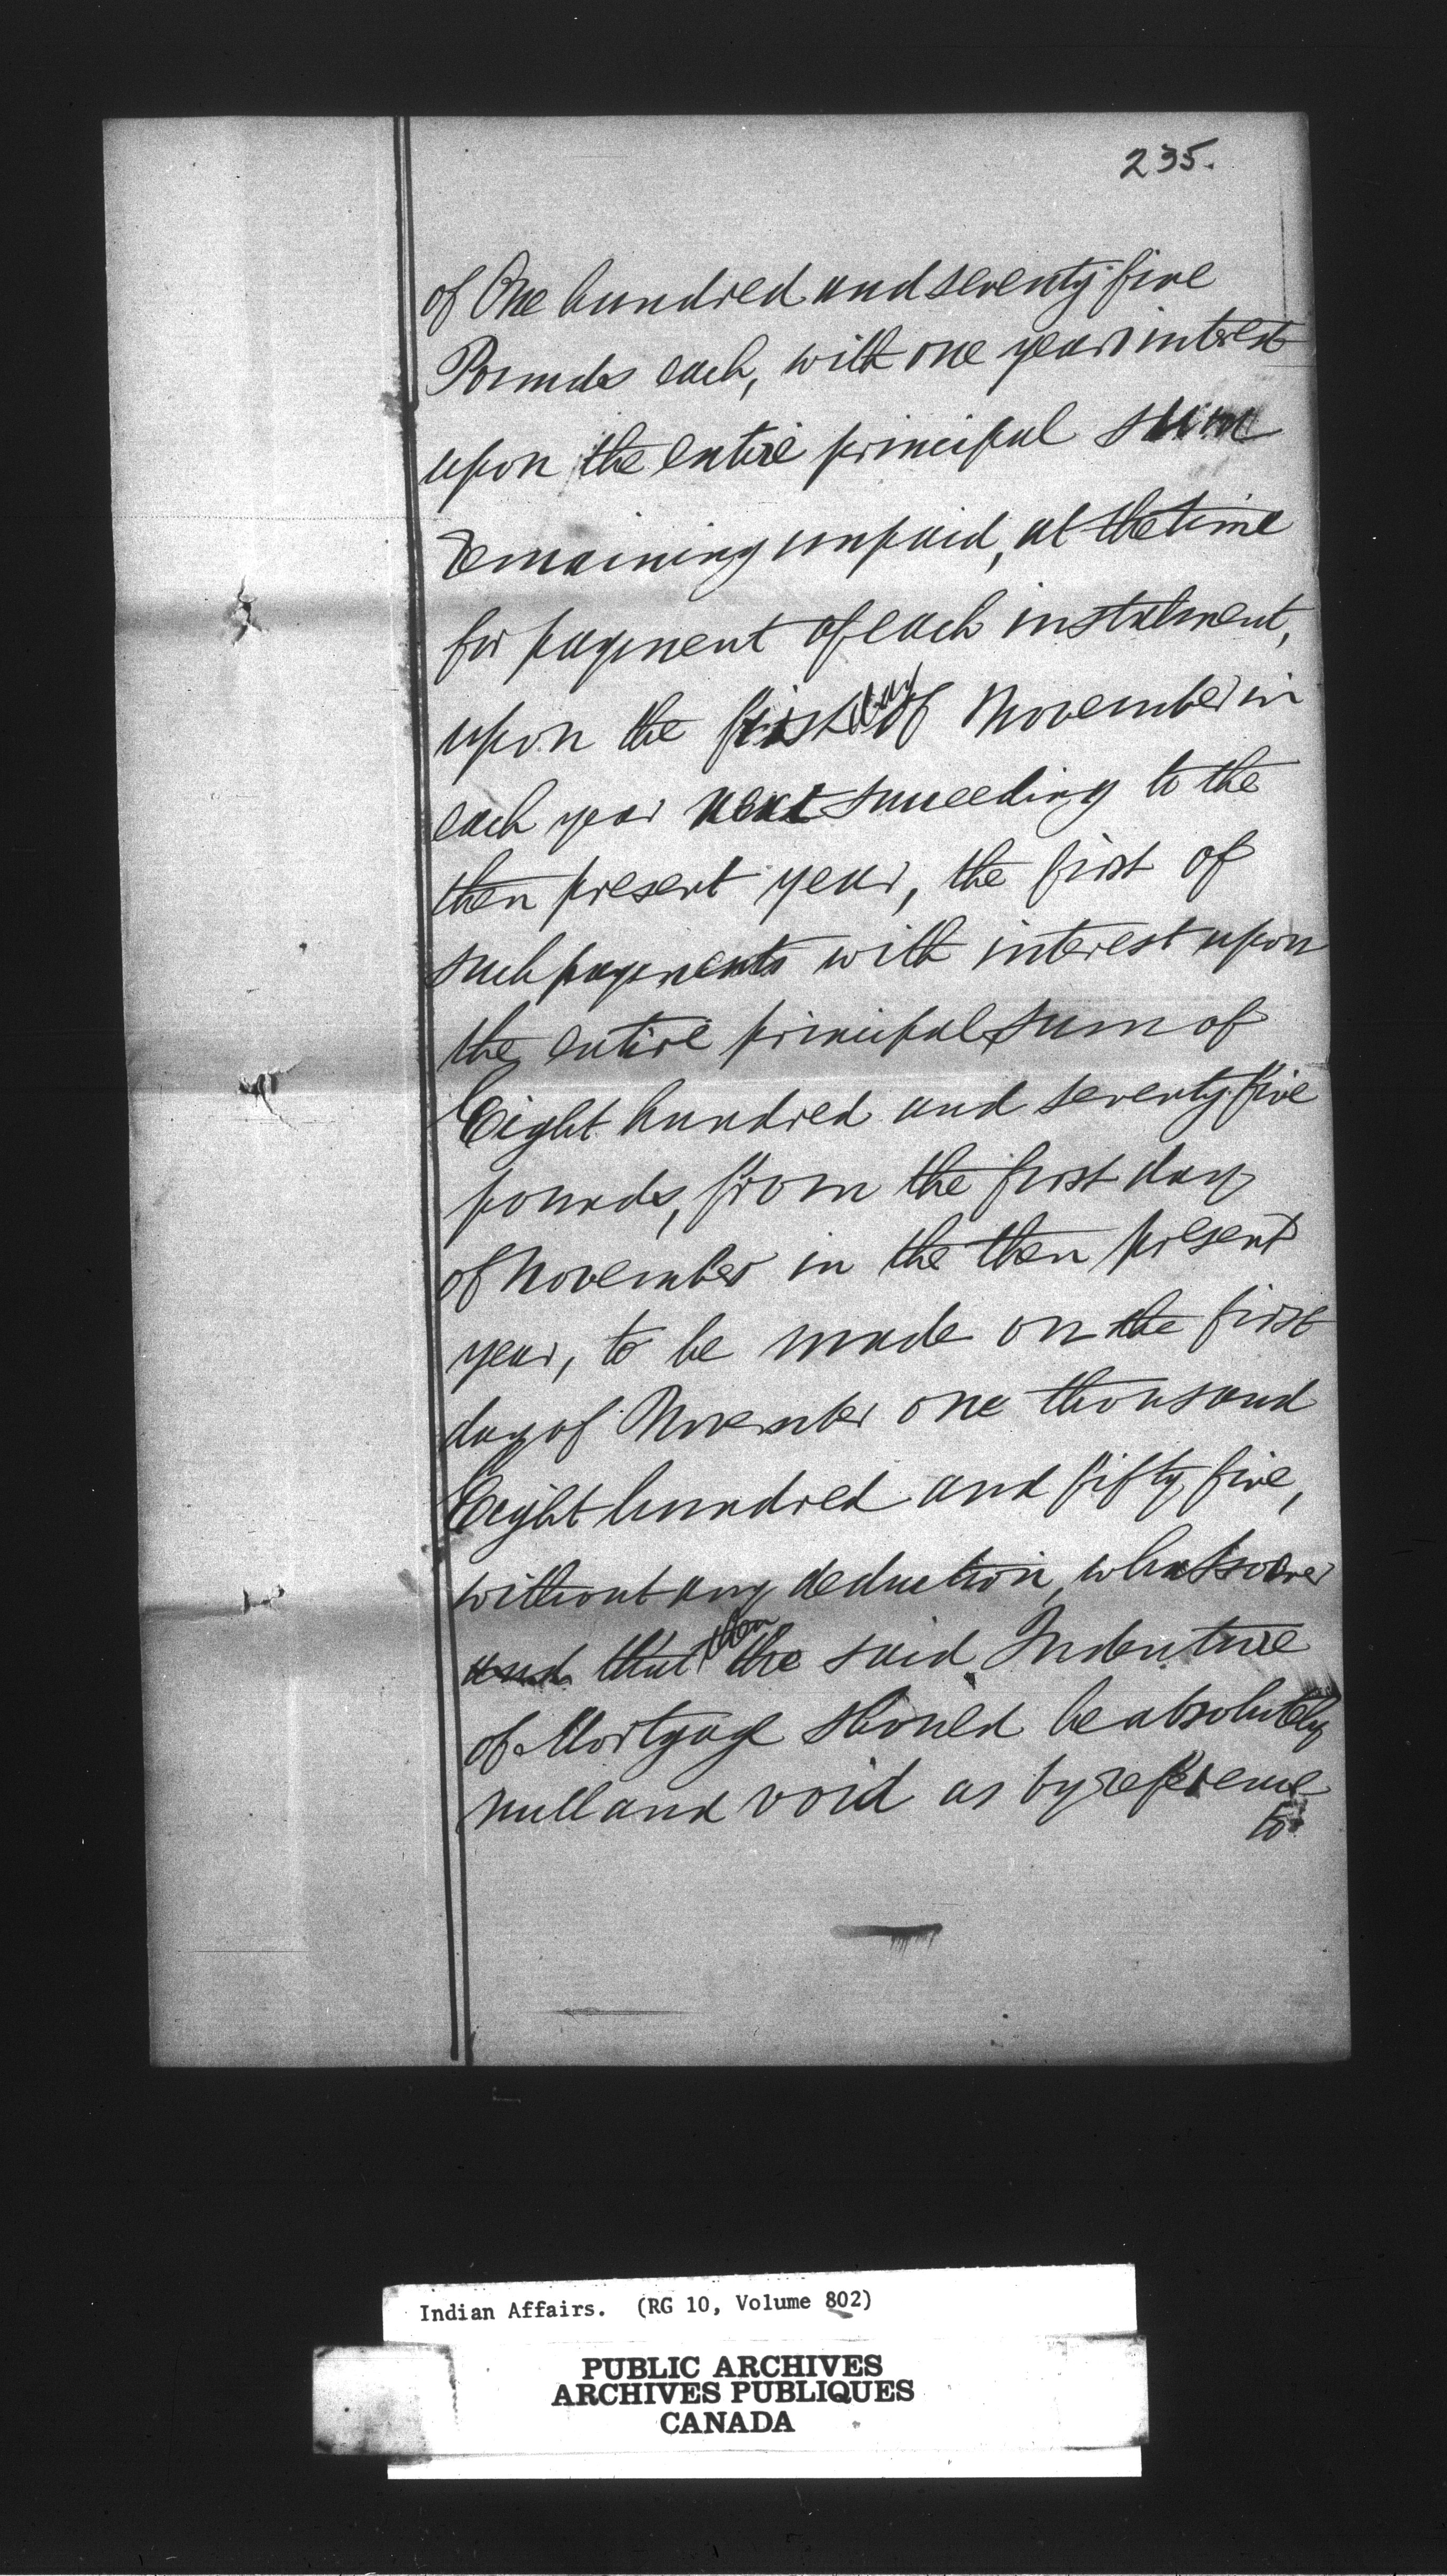 235.
of One hundred and seventy five
Pounds each, with one years interest
upon the entire principal sum
remaining unpaid, at the time
for payment of each instalment,
upon the first day of November in
each year next succeeding to the
then present year, the first of
such payments with interest upon
the entire principal sum of
Eight hundred and seventy five
pounds, from the first day
of November in the then present
year, to be made on the first
day of November one thousand
Eight hundred and fifty five,
without any deduction, whatsoever
and that then the said Indenture
of Mortgage should be absolutely
null and void as by reference
to
Indian Affairs. (RG 10, Volume 802)
PUBLIC ARCHIVES
ARCHIVES PUBLIQUES
CANADA